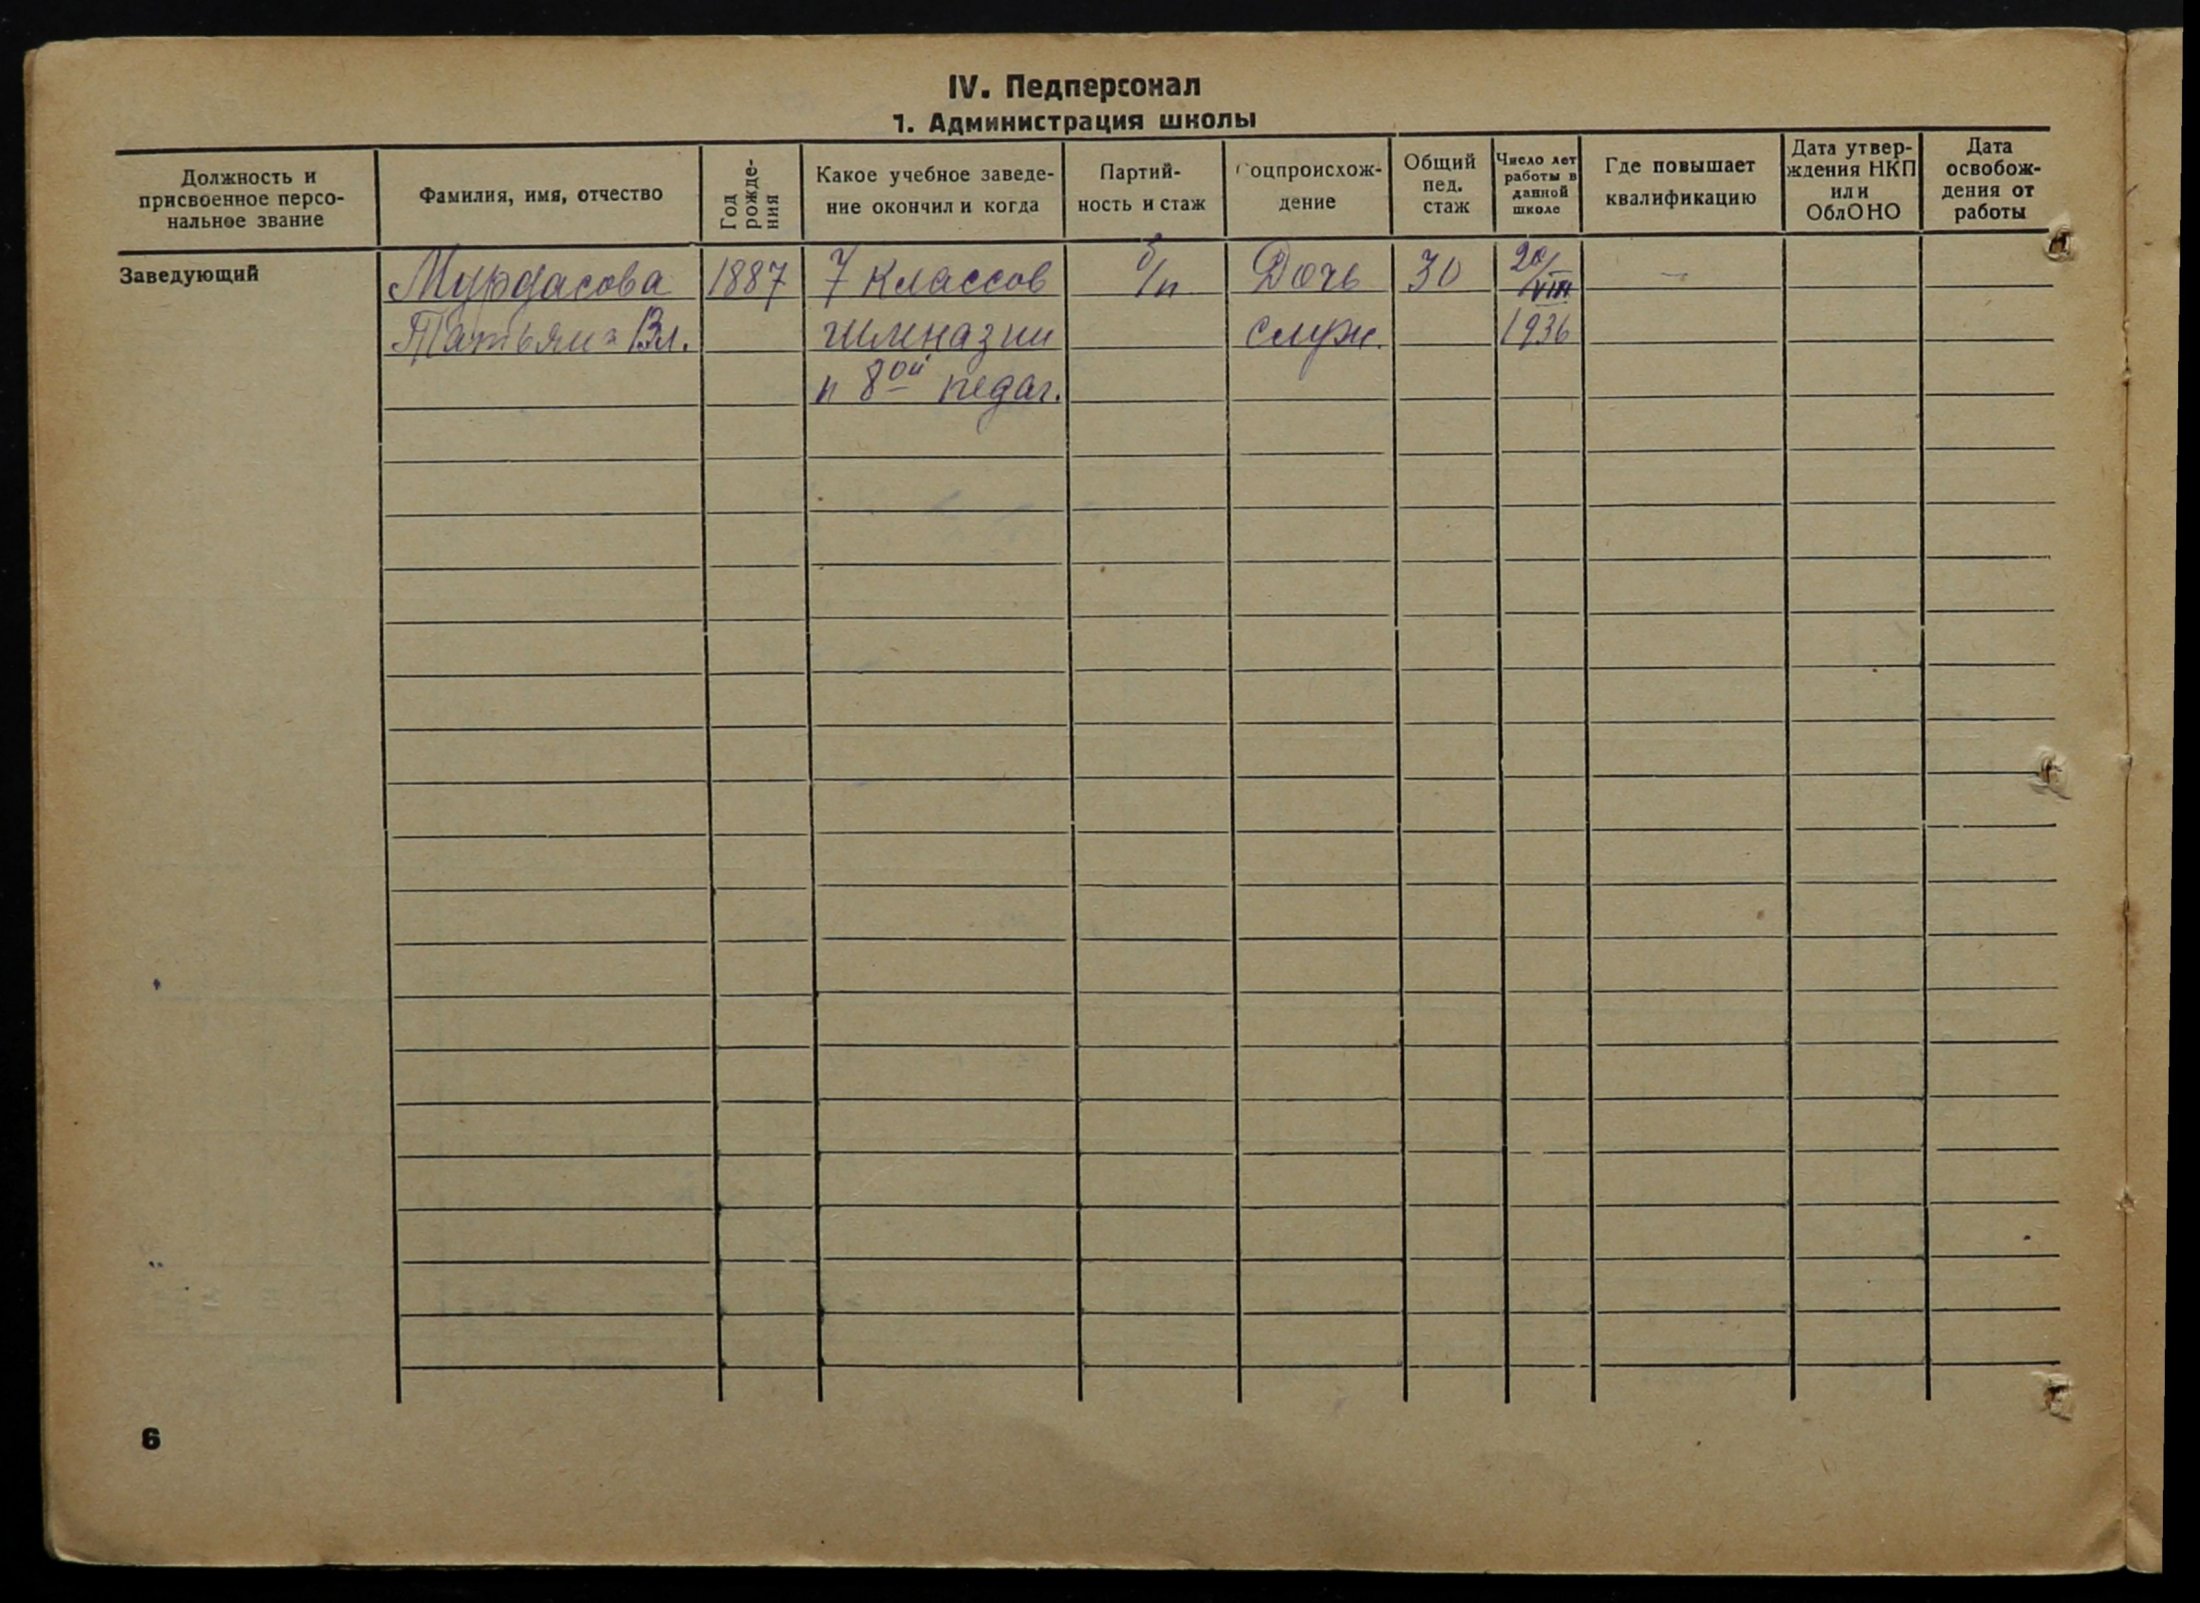 IV. Педперсонал
1. Администрация школы
Должность и
присвоенное персо-
нальное звание
Фамилия, имя, отчество
Год
рожде-
ния
Какое учебное заведе-
ние окончил и когда
Партий-
ность и стаж
Соцпроисхож-
дение
Общий
пед.
стаж
Число лет
работы в
данной
школе
Где повышает
квалификацию
Дата утвер-
ждения НКП
или
ОблОНО
Дата
освобож-
дения от
работы
Заведующий
Мурдасова
Татьяна Вл.
1887
7 классов
гимназии
и 8ой педаг.
б/п
Дочь
служ.
30
20/VIII
1936
—
6